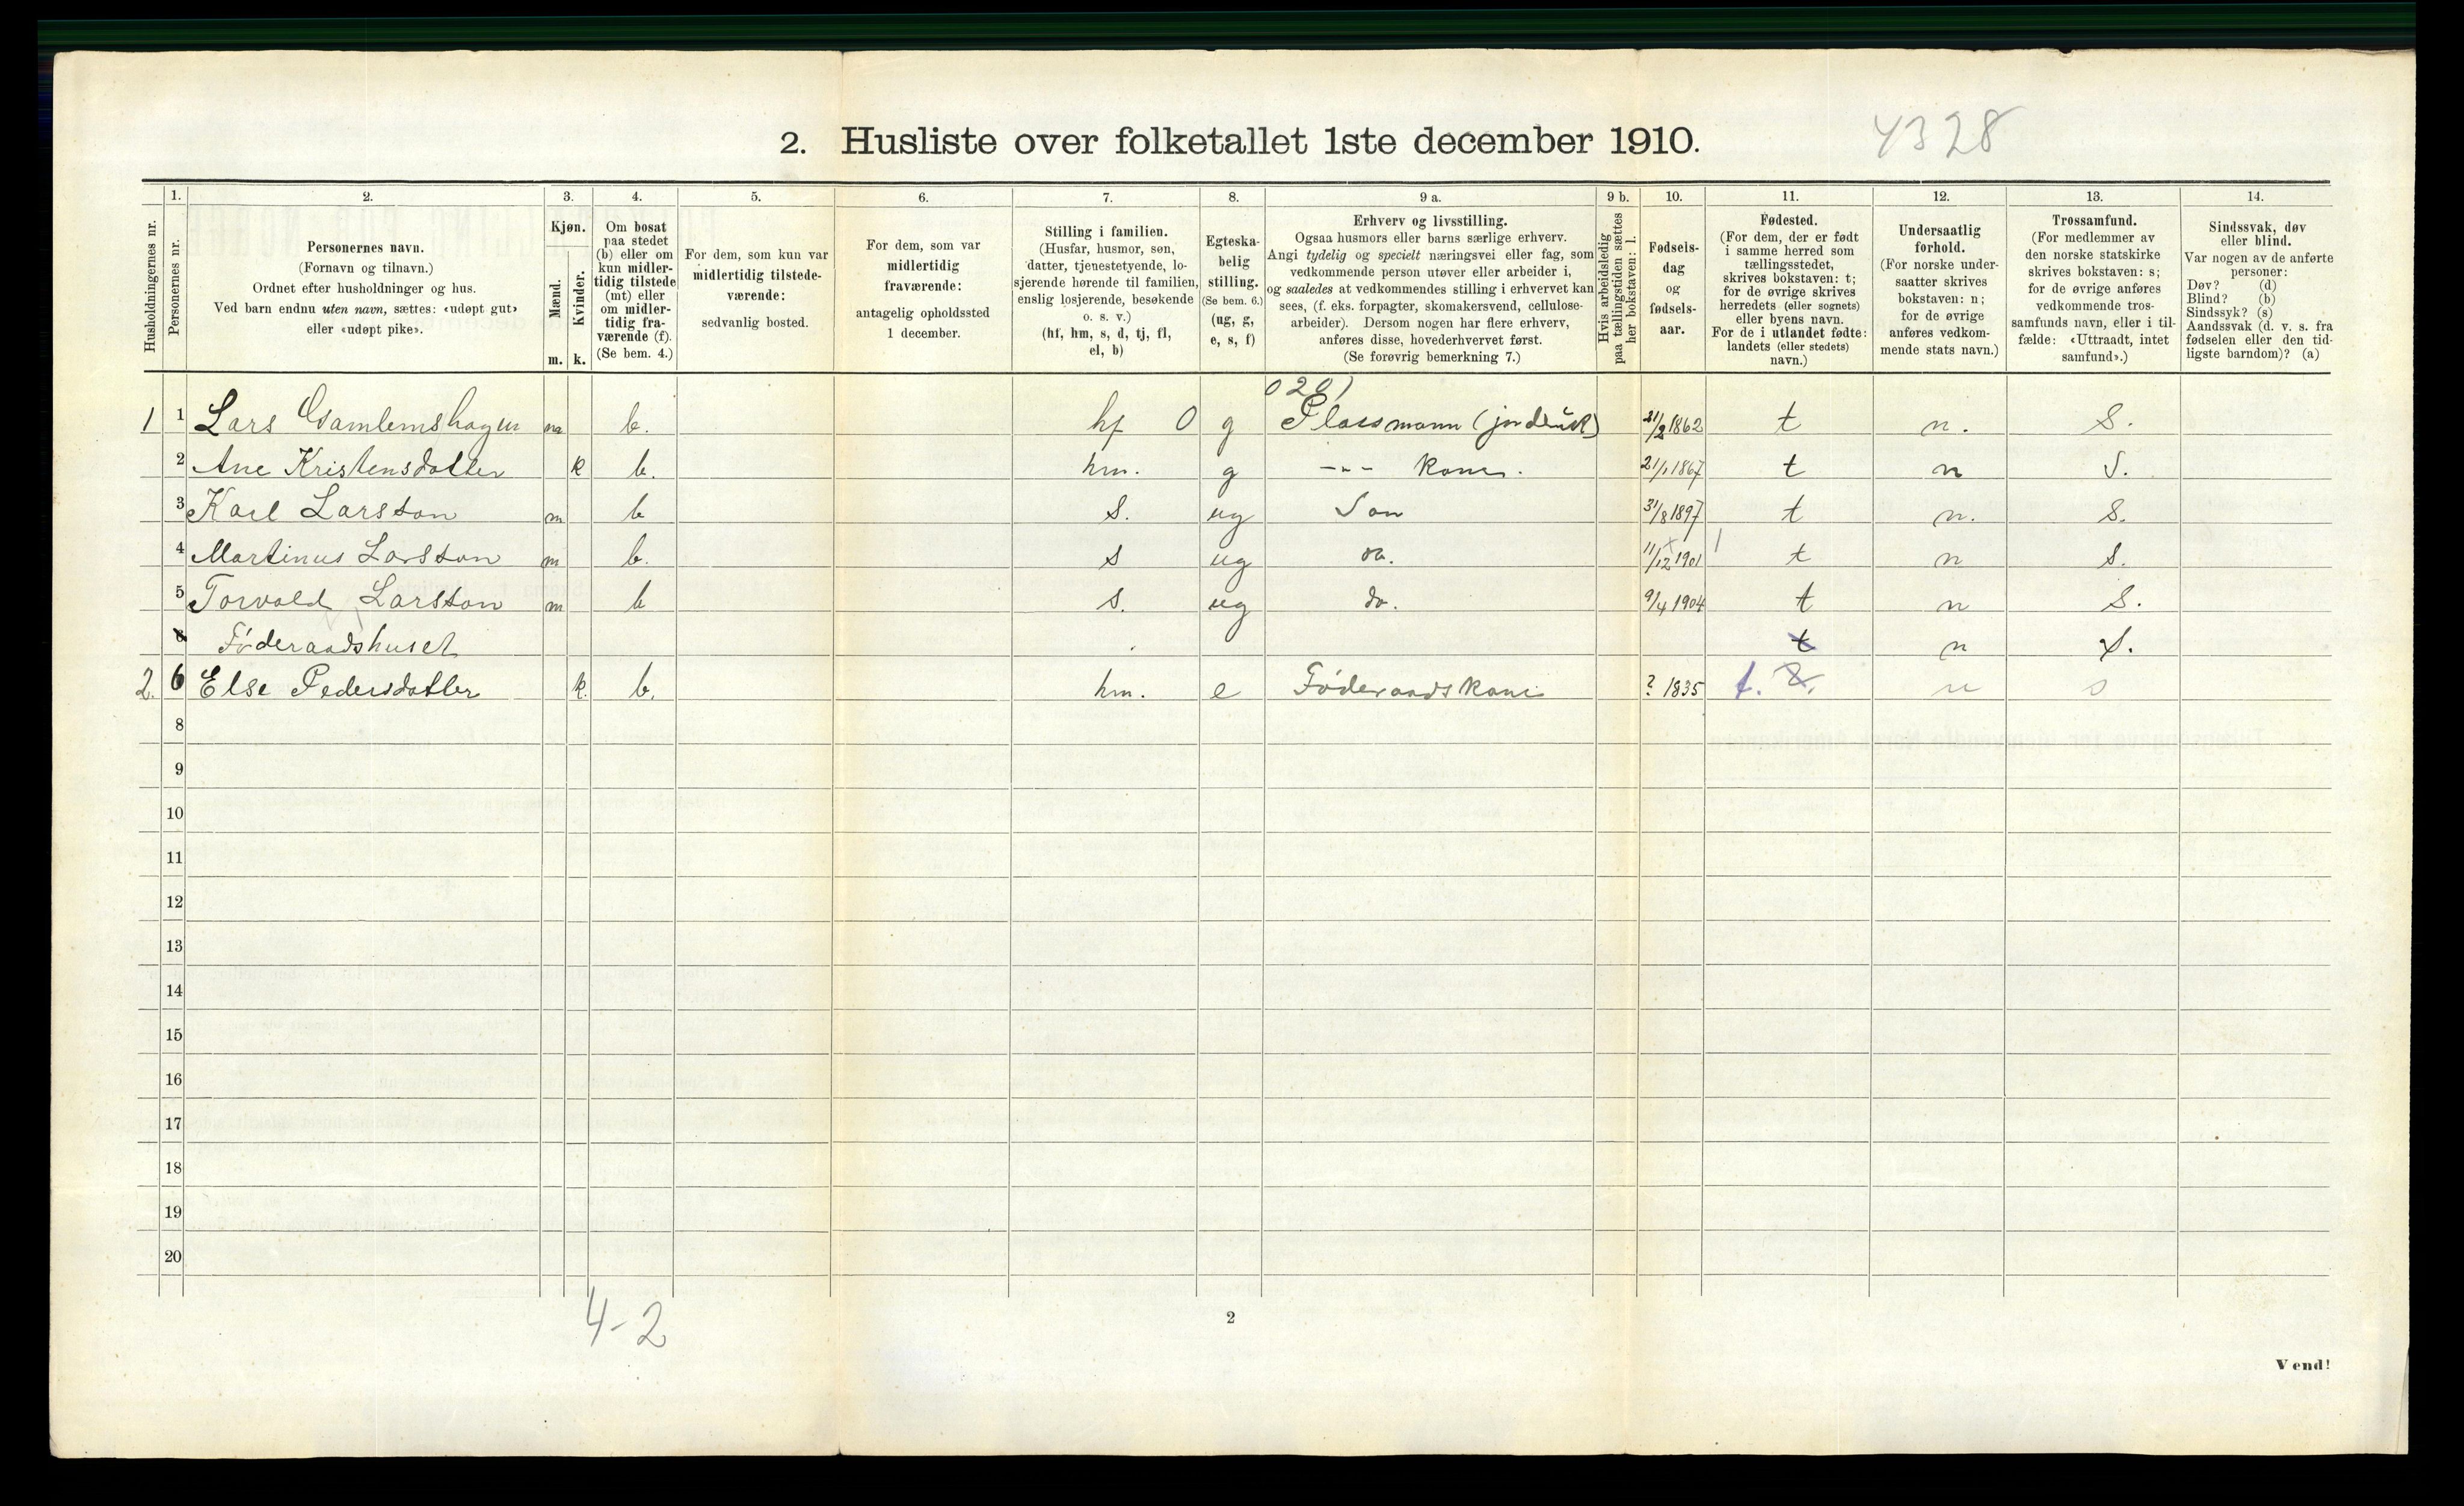 2. Husliste over folketallet 1ste december 1910.
4328
1. 2. 3. 4. 5. 6. 7. 8. 9 a. 9 b. 10. 11. 12. 13. 14.
Husholdningernes nr.
Personernes nr.
Personernes navn.
(Fornavn og tilnavn.)
Ordnet efter husholdninger og hus.
Ved barn endnu uten navn, sættes: «udøpt gut»
eller «udøpt pike».
Kjøn.
Mænd.
Kvinder.
m. k.
Om bosat
paa stedet
(b) eller om
kun midler-
tidig tilstede
(mt) eller
om midler-
tidig fra-
værende (f).
(Se bem. 4.)
For dem, som kun var
midlertidig tilstede-
værende:
sedvanlig bosted.
For dem, som var
midlertidig
fraværende:
antagelig opholdssted
1 december.
Stilling i familien.
(Husfar, husmor, søn,
datter, tjenestetyende, lo-
sjerende hørende til familien,
enslig losjerende, besøkende
o. s. v.)
(hf, hm, s, d, tj, fl,
el, b)
Egteska-
belig
stilling.
(Se bem. 6.)
(ug, g,
e, s, f)
Erhverv og livsstilling.
Ogsaa husmors eller barns særlige erhverv.
Angi tydelig og specielt næringsvei eller fag, som
vedkommende person utøver eller arbeider i,
og saaledes at vedkommendes stilling i erhvervet kan
sees, (f. eks. forpagter, skomakersvend, cellulose-
arbeider). Dersom nogen har flere erhverv,
anføres disse, hovederhvervet først.
(Se forøvrig bemerkning 7.)
Hvis arbeidsledig
paa tællingstiden sættes
her bokstaven: l.
Fødsels-
dag
og
fødsels-
aar.
Fødested.
(For dem, der er født
i samme herred som
tællingsstedet,
skrives bokstaven: t;
for de øvrige skrives
herredets (eller sognets)
eller byens navn.
For de i utlandet fødte:
landets (eller stedets)
navn.)
Undersaatlig
forhold.
(For norske under-
saatter skrives
bokstaven: n;
for de øvrige
anføres vedkom-
mende stats navn.)
Trossamfund.
(For medlemmer av
den norske statskirke
skrives bokstaven: s;
for de øvrige anføres
vedkommende tros-
samfunds navn, eller i til-
fælde: «Uttraadt, intet
samfund».)
Sindssvak, døv
eller blind.
Var nogen av de anførte
personer:
Døv? (d)
Blind? (b)
Sindssyk? (s)
Aandssvak (d. v. s. fra
fødselen eller den tid-
ligste barndom)? (a)
0201
1 1 Lars Gamlemshagen m b. hf 0 g Plassmann (jordbruk) 21/2 1862 t n. S.
2 Ane Kristensdatter k b. hm. g -"- kone. 21/1 1867 t n S.
3 Karl Larsson m b S. ug Son 31/8 1897 t n. S.
4 Martinus Larsson m b. S ug do. 11/12 1901 t n S.
5 Torvald Larsson m b S. ug do. 9/4 1904 t n S.
6 Føderaadshuset t n S.
2. 6 Else Pedersdatter k. b. hm. e Føderaadskone ? 1835 t. n s
8
9
10
11
12
13
14
15
16
17
18
19
20
4-2
2
Vend!